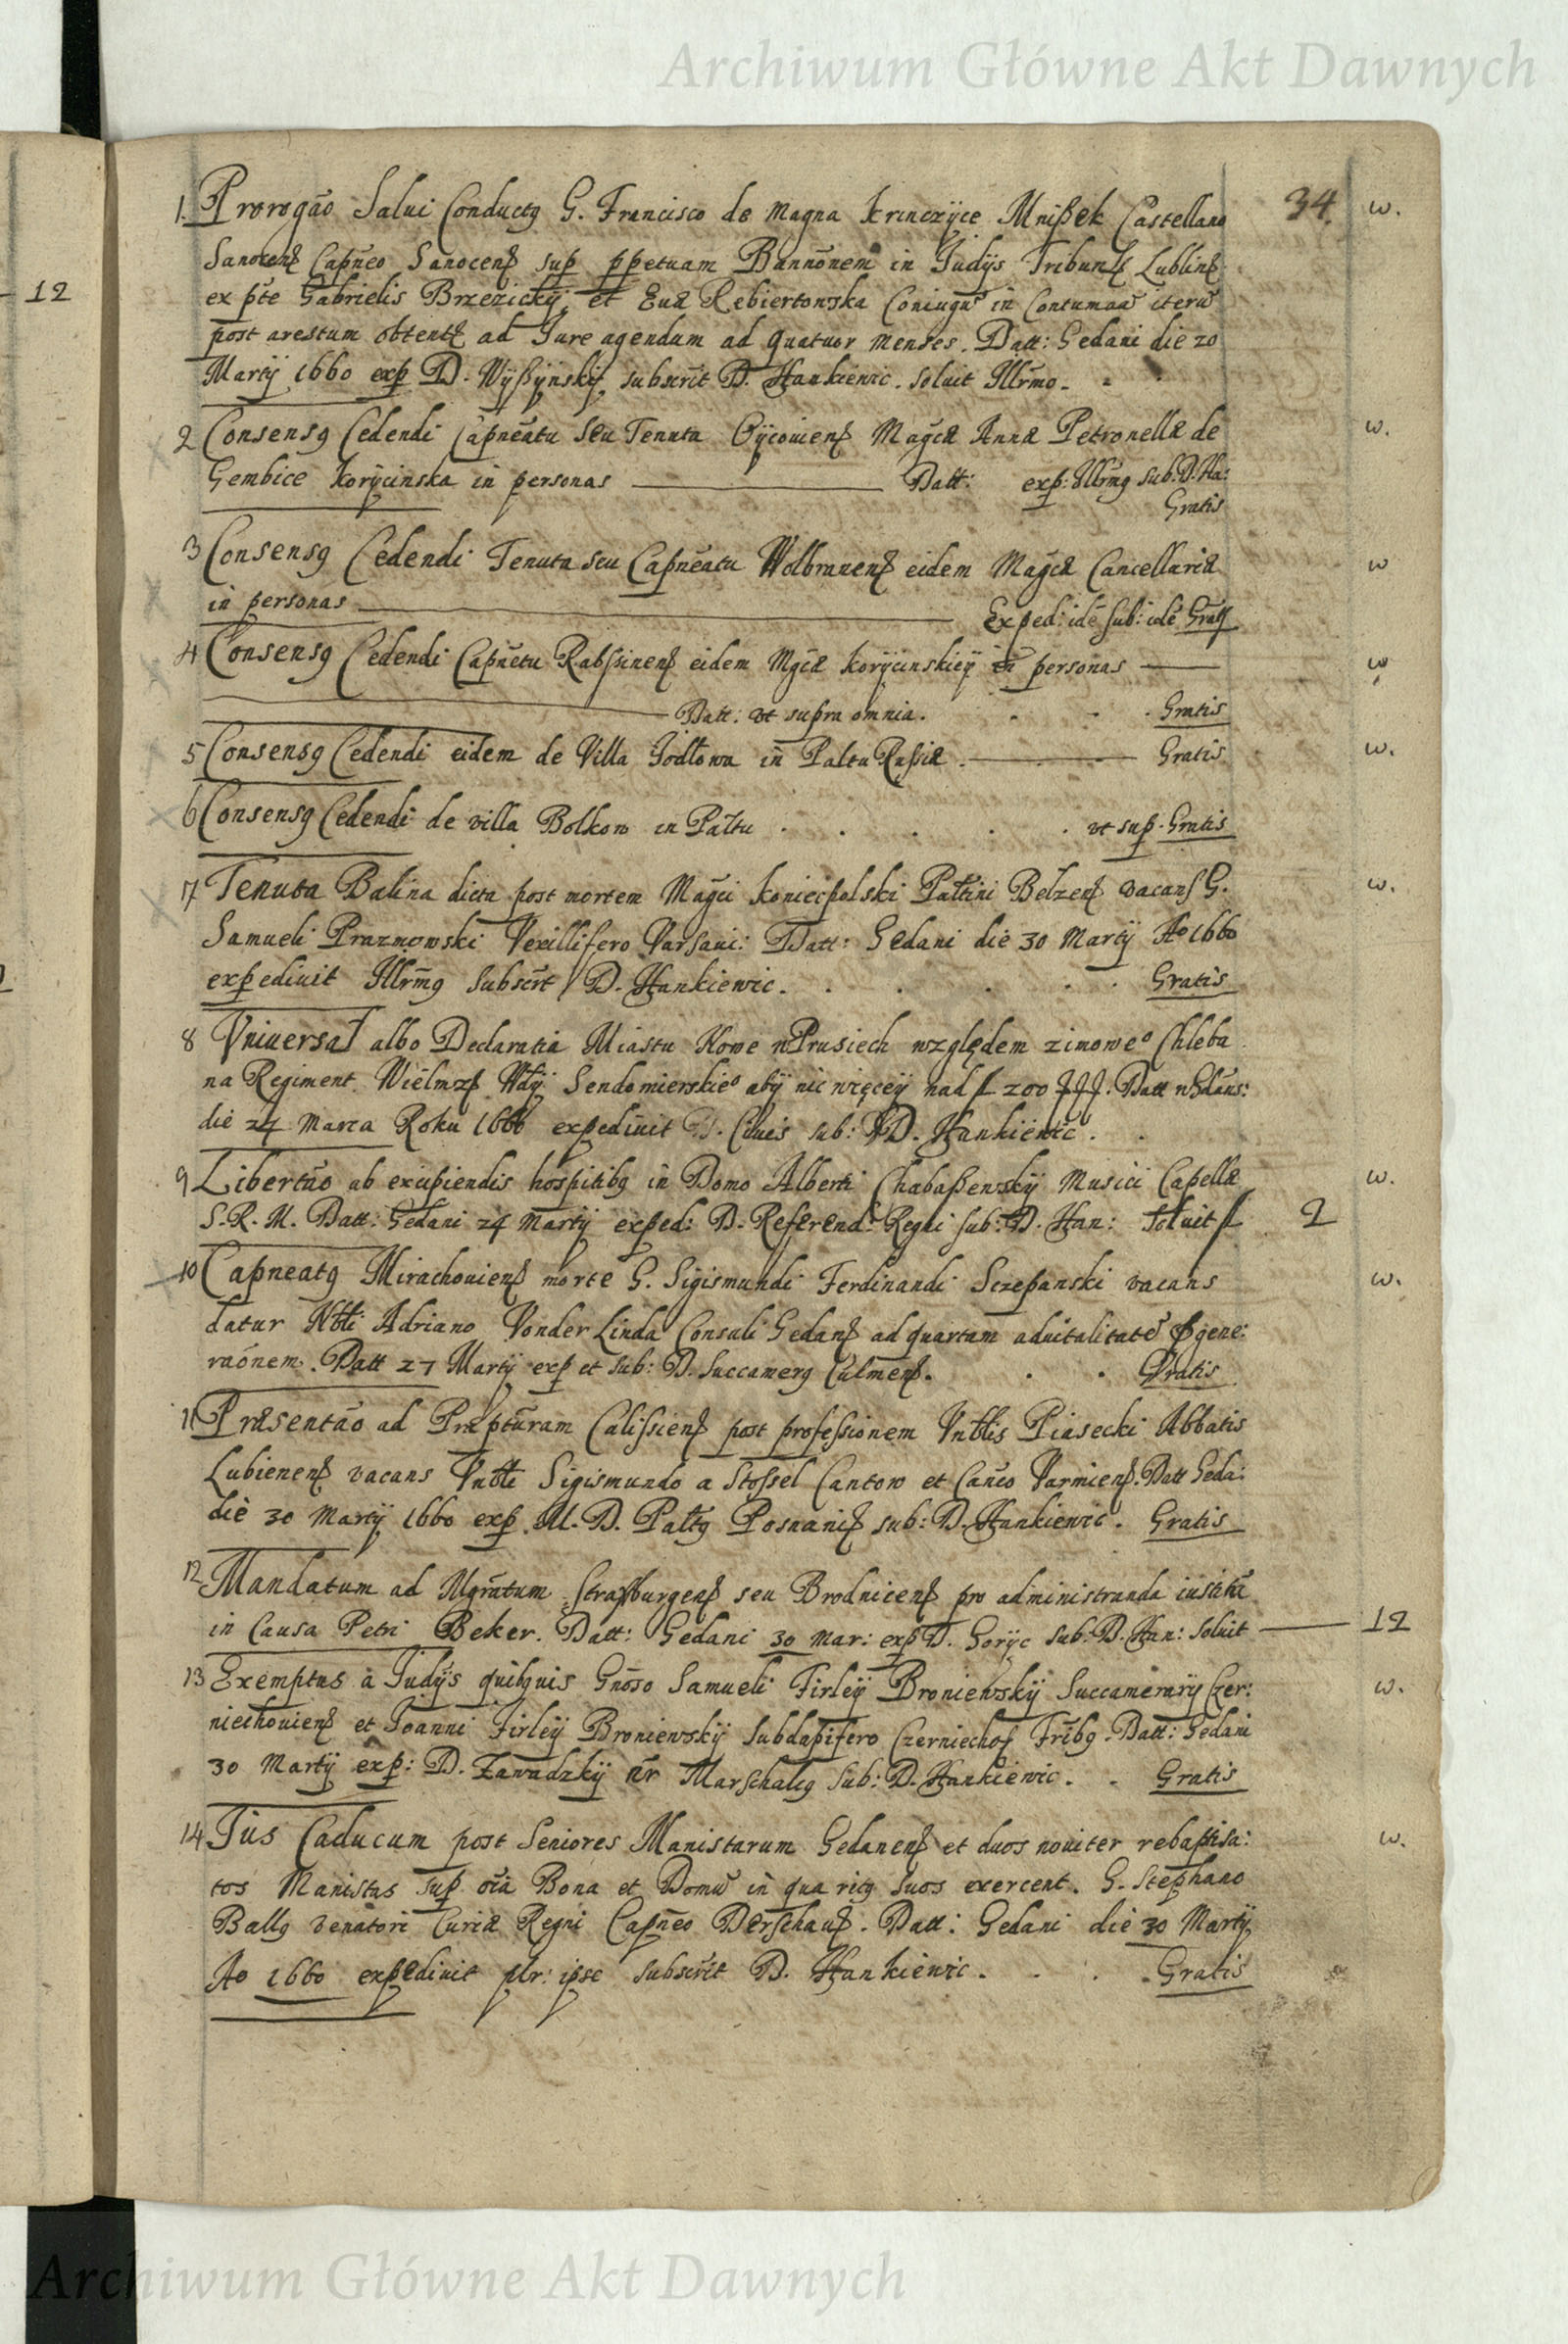 Archiwum Główne Akt Dawnych
34.
12
1. Prorogão Salui Conductꝯ G. Francisco de Magna Krinczÿce Mnißek Castellano w.
Sanocenß Capñeo Sanocenß sup ppetuam Bannõnem in Judÿs Tribunlß Lublinß
ex pte Gabrielis Brzezickÿ et Eua Rebiertowska Coniugũ in Contumaa iterũ
post arestum obtentß ad Jure agendum ad quatuor menses. Datt: Gedani die 20
Martÿ 1660 exp D. Wÿßÿnskÿ subscrit D. Hankiewic. soluit Illrmo.
2 Consensꝯ Cedendi Capñeatu seu Tenuta Oÿcouienß Magcæ Annæ Petronellæ de w.
Gembice Korÿcinska in personas Datt: exp: Illrmꝯ sub: D. Ha:
Gratis
3 Consensꝯ Cedendi Tenuta seu Capñeatu Wolbramenß eidem Magcæ Cancellariæ w
in personas Exped: idẽ sub: idẽ Gratß
4 Consensꝯ Cedendi Capñetu Rabsinenß eidem Mgcæ Korÿcinskieÿ in personas w
Datt: vt supra omnia. Gratis
5 Consensꝯ Cedendi eidem de Villa Jodłowa in Paltu Russiæ. Gratis w.
6 Consensꝯ Cedendi de villa Bolkow in Paltu vt sup. Gratis
7 Tenuta Balina dicta post mortem Magci Koniecpolski Paltini Belzenß vacans G. w.
Samueli Prazmowski Vexillifero Varsaui: Datt: Gedani die 30 Martÿ Ao 1660
expediuit Illrmꝯ subscrt D. Hankiewic. Gratis
8 Vniuersał albo Declaratia Miastu Nowe w Prusiech względem zimoweᵒ Chleba
na Regiment Wielmzß Wdÿ Sendomierskieᵒ abÿ nic więceÿ nad f 200 Datt w Gdans:
die 24 Marca Roku 1660 expediuit D. Ciuis sub: D. Hankiewic.
9 Libertão ab excipiendis hospitibꝯ in Domo Alberti Chabaßewskÿ Musici Capellæ w.
S. R. M. Datt: Gedani 24 Martÿ exped: D. Referend: Regni sub: D. Han: soluit f 2
10 Capneatꝯ Mirachouienß morte G. Sigismundi Ferdinandi Sczepanski vacans w.
datur Nbli Adriano Vonder Linda Consuli Gedanß ad quartam aduitalitatẽ gene:
raõnem. Datt 27 Martÿ exp et sub: D. Succamerꝯ Culmenß. Gratis
11 Præsentão ad Præpturam Calissienß post professionem Vnblis Piasecki Abbatis
Lubienenß vacans Vnbli Sigismundo a Stossel Cantow et Canco Varmienß. Datt Geda:
die 30 Martÿ 1660 exp M. D. Paltꝯ Posnaniß sub: D. Hankiewic. Gratis
12 Mandatum ad Mgratum Strasburgenß seu Brodnicenß pro administranda iustitia
in Causa Petri Beker. Datt: Gedani 30 Mar: exp D. Gorÿc sub: D. Han: soluit 12
13 Exemptus à Judÿs quibꝯuis Gnõso Samueli Firleÿ Broniewskÿ Succamerarÿ Czer: w.
niechouienß et Joanni Firleÿ Broniewskÿ Subdapifero Czerniechoß Fribꝯ. Datt: Gedani
30 Martÿ exp: D. Zawadzkÿ nr Marschalꝯ sub: D. Hankiewic. Gratis
14 Jus Caducum post Seniores Manistarum Gedanenß et duos nouiter rebaptisa: w.
tos Manistas sup oia Bona et Domũ in qua ritꝯ suos exercent. G. Stephano
Ballꝯ venatori Curiæ Regni Capñeo Derschauß. Datt: Gedani die 30 Martÿ
Ao 1660 expediuit plr: ipse subscrit D. Hankiewic. Gratis
Archiwum Główne Akt Dawnych